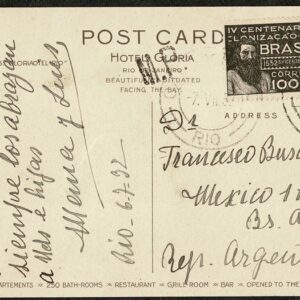 POST CARD
HOTEL GLORIA
RIO DE JANEIRO
BEAUTIFULLY SITUATED
FACING THE BAY
IV CENTENARIO
COLONIZAÇÃO
BRASIL
1532
CORREIO
100
RIO
siempre los abrazan
a Uds e hijas
Mema y Luis
Rio - 6.7.32
Dr
Francesco Busc
Mexico 1
Bs. A
Rep. Argen
ARTEMENTS * 250 BATH-ROOMS * RESTAURANT * GRILL-ROOM * BAR * OPENED TO THE